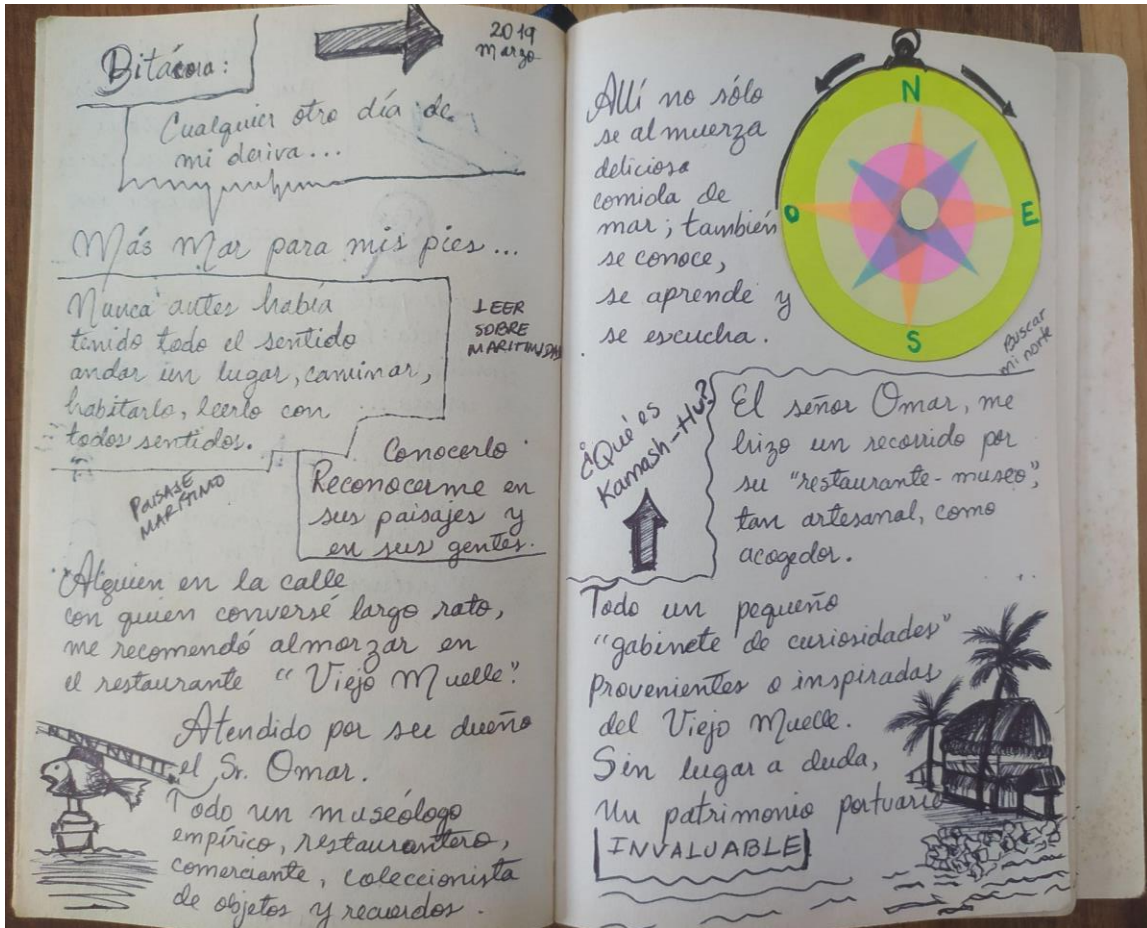 Bitácora:
2019
Marzo
Cualquier otro día de
mi deriva...
Más Mar para mis pies...
Nunca antes había
tenido todo el sentido
andar un lugar, caminar,
habitarlo, leerlo con
todos sentidos.
LEER
SOBRE
MARITIMIDAD
PAISAJE
MARÍTIMO
Conocerlo
Reconocerme en
sus paisajes y
en sus gentes.
Alguien en la calle
con quien conversé largo rato,
me recomendó almorzar en
el restaurante "Viejo Muelle".
Atendido por su dueño
el Sr. Omar.
Todo un museólogo
empírico, restaurantero,
comerciante, coleccionista
de objetos y recuerdos.
Allí no sólo
se almuerza
deliciosa
comida de
mar; también
se conoce,
se aprende y
se escucha.
N
O
E
S
Buscar
mi norte
¿Qué es
Kamash-Hu?
El señor Omar, me
hizo un recorrido por
su "restaurante-museo",
tan artesanal, como
acogedor.
Todo un pequeño
"gabinete de curiosidades"
Provenientes o inspiradas
del Viejo Muelle.
Sin lugar a duda,
Un patrimonio portuario
INVALUABLE